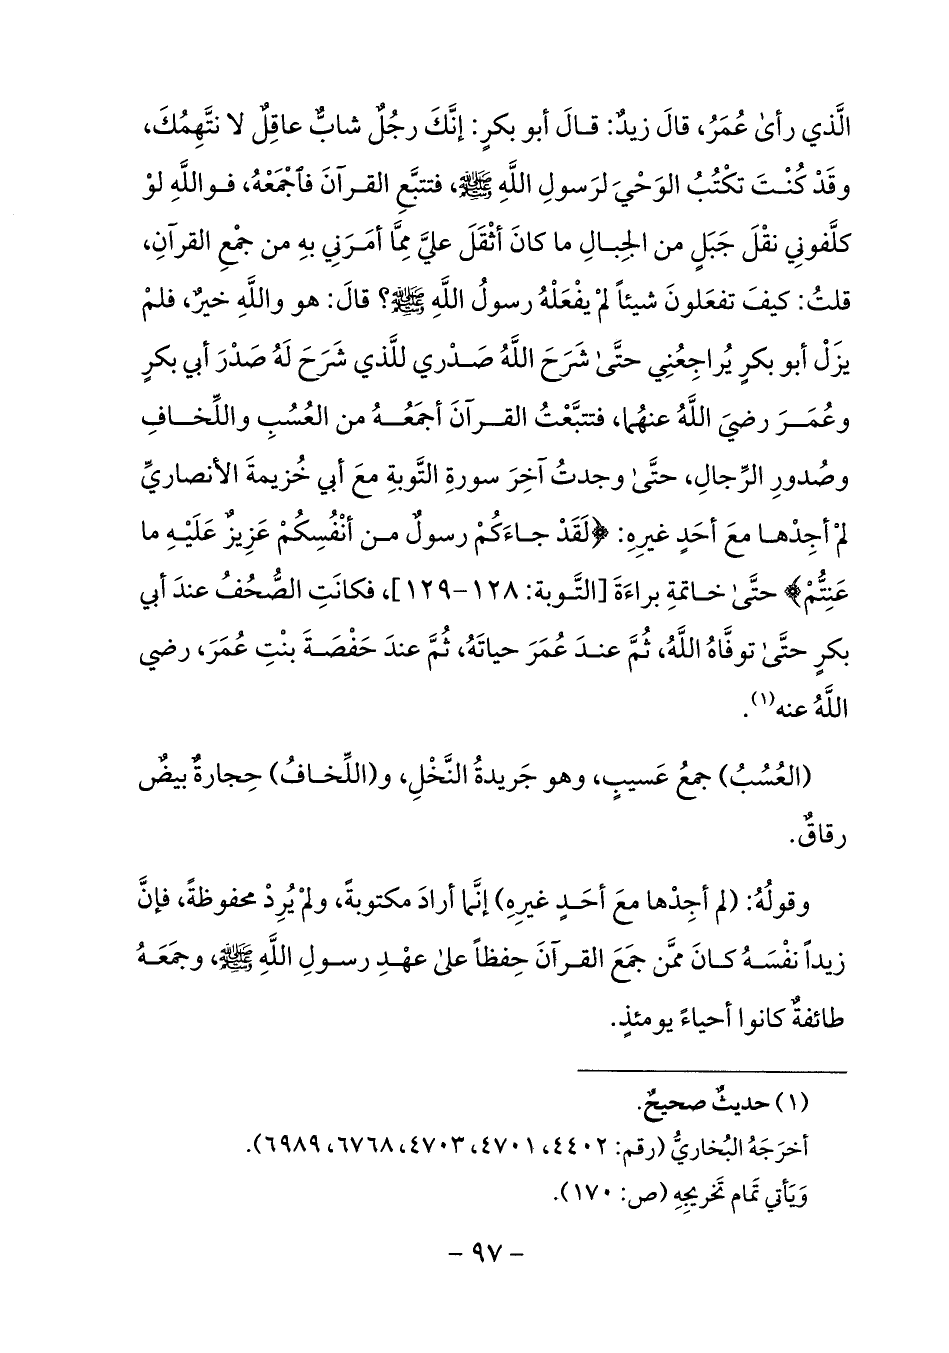 الَّذي رأىٰ عُمَرُ، قالَ زيدٌ: قـالَ أبو بكرٍ: إنَّكَ رجُلٌ شابٌّ عاقِلٌ لا نتَّهِمُكَ،
وقَدْ كُنْـتَ تكْتُبُ الوَحْيَ لرَسولِ اللَّهِ ﷺ، فتتبَّعِ القـرآنَ فاَجْمَعْهُ، فـواللَّهِ لوْ
كلَّفوني نقْلَ جَبَلٍ من الجِبـالِ ما كانَ أثْقَلَ عليَّ ممَّا أمَرَني بهِ من جمْعِ القرآنِ،
قلتُ: كيفَ تفعَلونَ شيئاً لمْ يفْعَلْهُ رسولُ اللَّهِ ﷺ؟ قالَ: هو واللَّهِ خيرٌ، فلمْ
يزَلْ أبو بكرٍ يُراجِعُنِي حتَّىٰ شَرَحَ اللَّهُ صَـدْري للَّذي شَرَحَ لَهُ صَدْرَ أبي بكرٍ
وعُمَــرَ رضيَ اللَّهُ عنهُما، فتتبَّعْتُ القــرآنَ أجمَعُــهُ من العُسُبِ واللِّخـافِ
وصُدورِ الرِّجالِ، حتَّىٰ وجدتُ آخِرَ سورةِ التَّوبةِ معَ أبي خُزيمةَ الأنصاريِّ
لمْ أجِدْهـا معَ أحَدٍ غيرِهِ: ﴿لَقَدْ جـاءَكُمْ رسولٌ مـن أنْفُسِكُمْ عَزِيزٌ عَلَيْـهِ ما
عَنِتُّمْ﴾ حتَّىٰ خـاتمةِ براءَةَ [التَّـوبة: ١٢٨-١٢٩]، فكانَتِ الصُّحُفُ عندَ أبي
بكرٍ حتَّىٰ توفَّاهُ اللَّهُ، ثُمَّ عنـدَ عُمَرَ حياتَهُ، ثُمَّ عندَ حَفْصَـةَ بنْتِ عُمَرَ، رضي
اللَّهُ عنه(١).
(العُسُبُ) جمعُ عَسيبٍ، وهو جَريدةُ النَّخْلِ، و(اللِّخـافُ) حِجارةٌ بيضٌ
رقاقٌ.
وقولُهُ: (لم أجِدْها معَ أحَـدٍ غيرِهِ) إنَّما أرادَ مكتوبةً، ولمْ يُرِدْ محفوظةً، فإنَّ
زيداً نفْسَـهُ كـانَ ممَّن جمَعَ القـرآنَ حِفظاً علىٰ عهْـدِ رسـولِ اللَّهِ ﷺ، وجمَعَـهُ
طائفةٌ كانوا أحياءً يومئذٍ.
(١) حديثٌ صحيحٌ.
أخرَجَهُ البُخاريُّ (رقم: ٤٤٠٢، ٤٧٠١، ٤٧٠٣، ٦٧٦٨، ٦٩٨٩).
وَيَأتي تمَام تخْريجِهِ (ص: ١٧٠).
- ٩٧ -